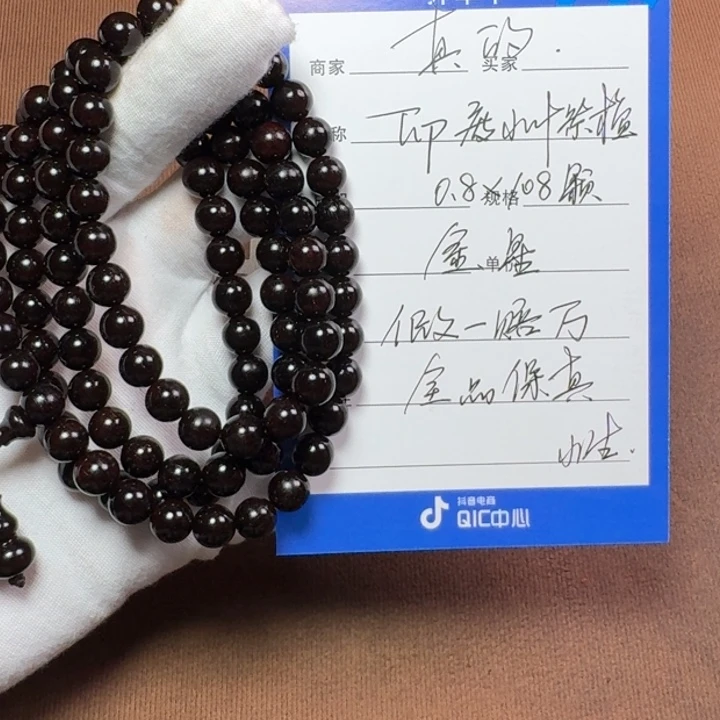 商家 真的. 买家
称 印度小叶紫檀
0.8×108颗 规格
金星 单
假一赔万
全品保真
小生.
抖音电商
QIC中心